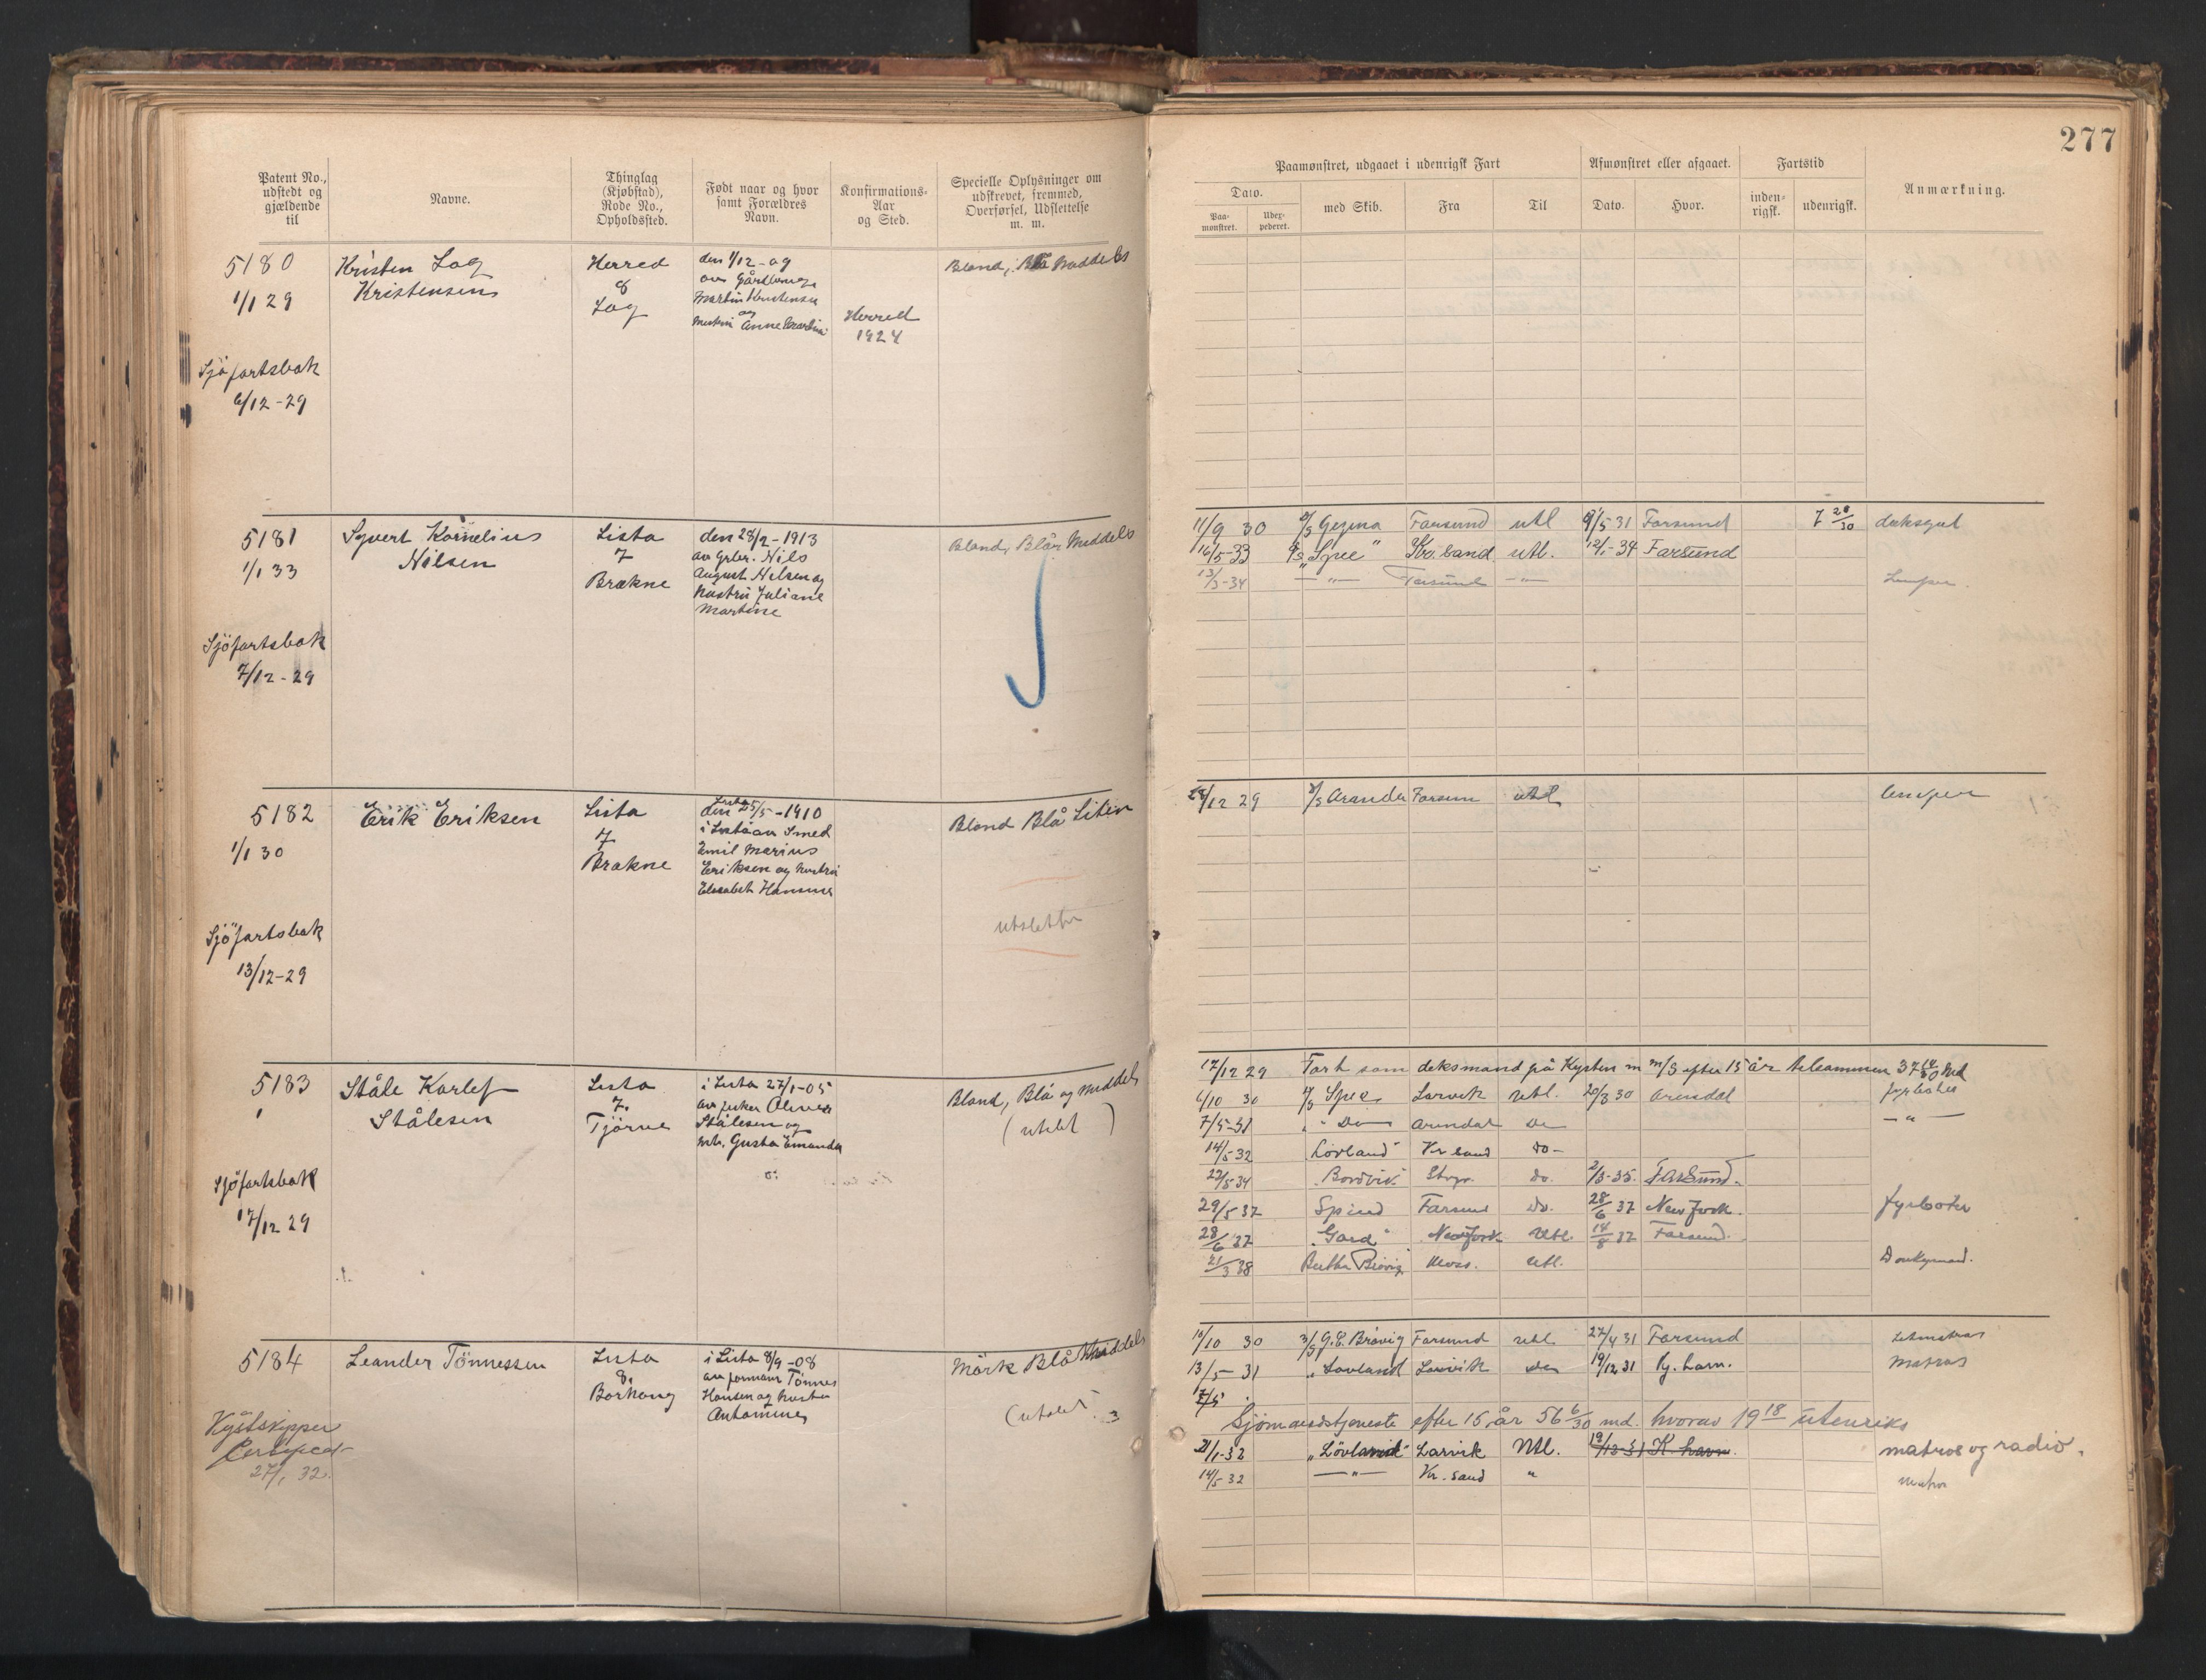 277
Patent No., udstedt og gjældende til
Navne.
Thinglag (Kjøbstad), Rode No., Opholdssted.
Født naar og hvor samt Forældres Navn.
Konfirmations-Aar og Sted.
Specielle Oplysninger om udskrevet, fremmed, Overførsel, Udslettelse m. m.
Paamønstret, udgaaet i udenrigsk Fart
Afmønstret eller afgaaet.
Fartstid
Anmærkning.
Dato.
Paa-mønstret.
Udex-pederet.
med Skib.
Fra
Til
Dato.
Hvor.
inden-rigsk.
udenrigsk.
5180
1/1 29
Sjöfartsbok
6/12-29
Kristen Log
Kristensen
Herred
8
Log
den 1/12-09
av Gårdbruger
Martin Kristensen
og
Anne
Herred
1924
Bland, Blå Middels
5181
1/1 33
Sjöfartsbok
7/12-29
Syvert Kornelius
Nilsen
Lista
7
Brækne
den 28/2-1913
av Grbr. Nils
August Nilsen og
hustru Juliane
Martine
Bland, Blå Middels
11/9 30 Gezina Farsund utl 9/5 31 Farsund 7 28/30 deksgut
16/5-33 "Spec" Kr.sand utl. 12/1-34 Farsund
13/3-34 —"— Farsund —"— Lemper
5182
1/1 30
Sjöfartsbok
13/12-29
Erik Eriksen
Lista
7
Brækne
Lista
den 25/5-1910
i Lista av Smed
Emil Marius
Eriksen og hustru
Elisabet
Bland Blå Liten
utslettes
/12 29 Farsun utl Lemper
5183
Sjöfartsbok
17/12 29
Ståle Karlef
Stålesen
Lista
7.
Tjörve
i Lista 27/1-05
av fisker
Stålesen og
htr. Gusta Emanda
Bland, Blå og Middels
(utslet)
17/12 29 Fart som deksmand på Kysten m m/s efter 15 år tilsammen 37 md
6/10 30 Spec Larvik utl. 20/3 30 Arendal fyrböter
7/5-31 " Do Arendal Do —"—
14/5 32 "Lovland" Kr sand do-
/5-34 do. 2/3-35. Farsund.
29/5 37 Spind Farsund do. 28/6 37 New York. fyrböter
28/6 37 "Gard" New York Utl. 14/8 37 Farsund.
21/3 38 Brövig Moss. utl. Donkymand.
5184
Kystskipper
27/1 32.
Leander Tönnessen
Lista
8.
Borhaug
i Lista 8/9-08
av formann Tönnes
Hansen og hustru
Mörk Blå Middels
(utslet)
3
16/10 30 G.C. Brövig Farsund utl 27/4 31 Farsund Letmatros
13/5-31 "Lovland Larvik do 19/12 31 Kj. havn. Matros
17/5
Sjömandstjeneste efter 15 år 56 6/30 md. hvorav 19 18 utenriks
21/1-32 "Lövland" Larvik Utl. 19/12-31 K. havn. matros og radio.
14/5-32 —"— Kr. sand " matros